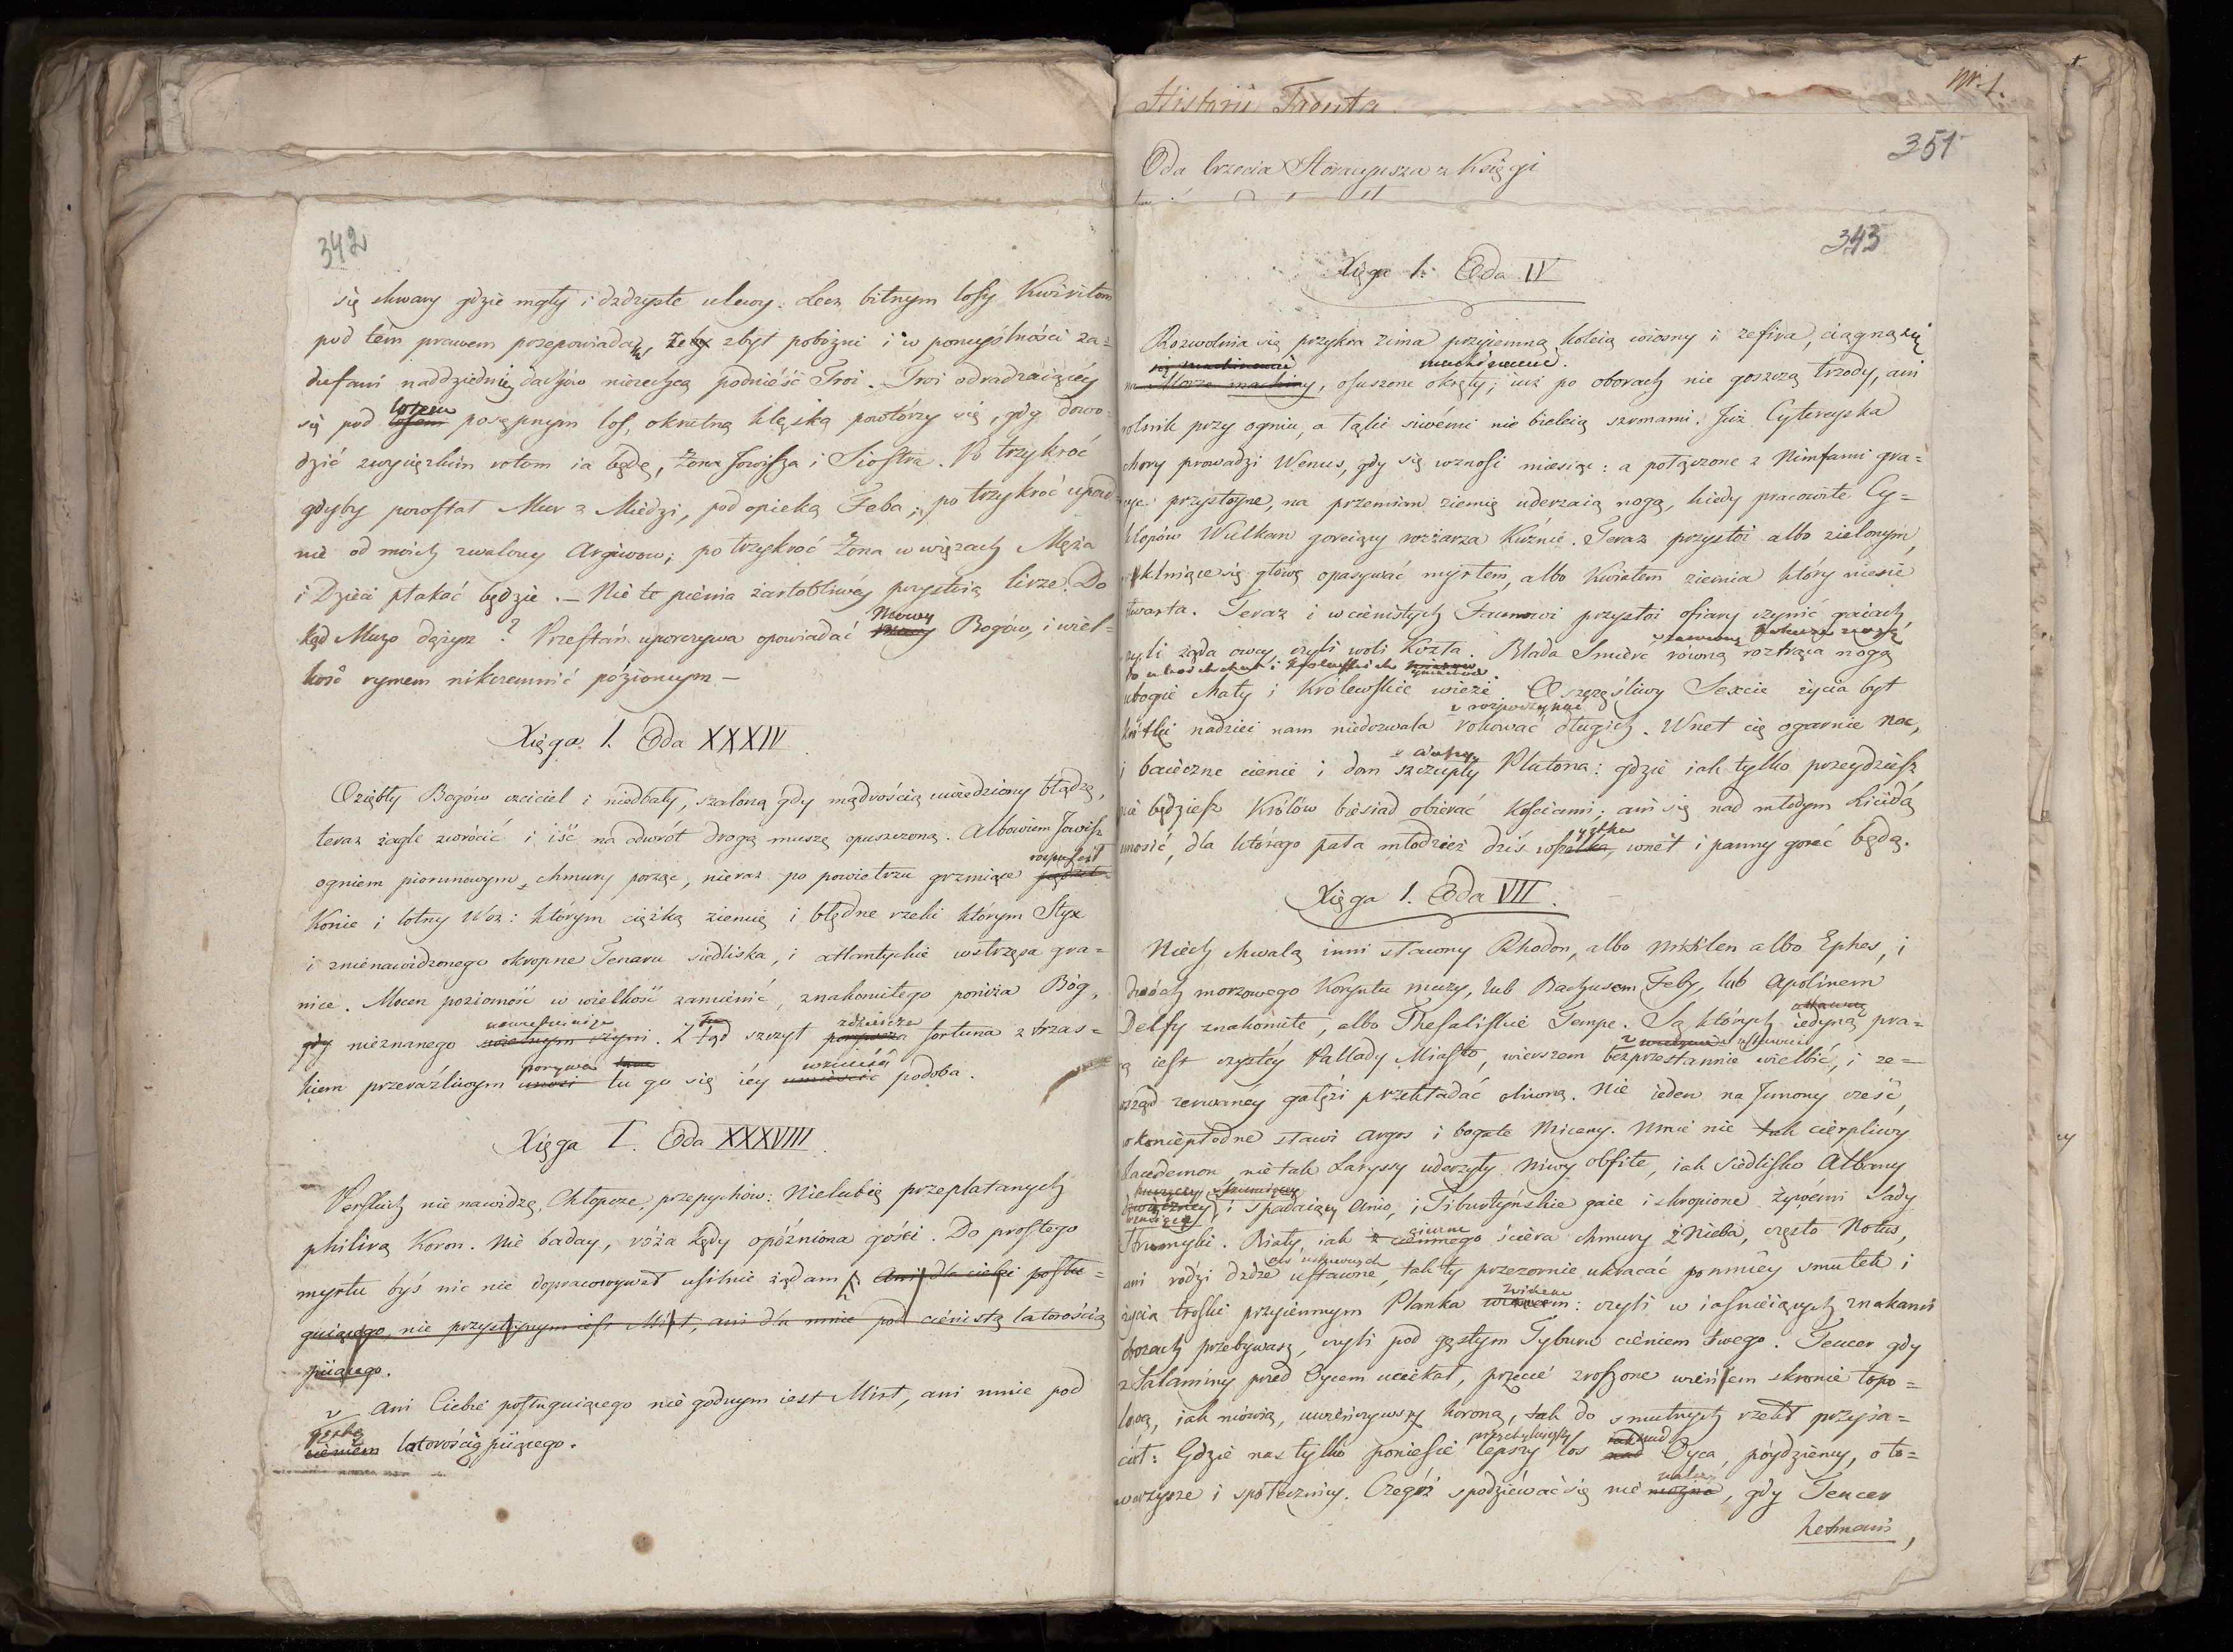 342
się chwary gdzie mgły i dżdżyste ulewy. Lecz bitnym losy Kwiritom
pod tém prawem przepowiadam, żeby zbyt pobożni i w pomyślności za=
dufani naddziednię dachów niezechcą podnieść Troi. Troi odradzaiącéy
lotem
się pod losem posępnym los, okrutną klęską powtórzy się, gdy dowo=
dzić zwycięzkim rotom ia będę, żona Jowisza i Siostra. Po trzykroć
gdyby powstał Mur z Miedzi, pod opieką Feba, po trzykroć upad=
nie od moich zwalony Argiwow; po trzykroć żona w więzach Męża
i Dzieci płakać będzie. — Nie te pienia żartobliwéy przystoią lirze. Do
Mowy
kąd Muzo dążysz? Przestań uporczywa opowiadać Bogów, i wiel=
kość rymem nikczemnić poziomym —
Xięga 1. Oda XXXIV.
Oziębły Bogów czciciel i niedbały, szaloną gdy mądrością uwiedziony błądzę,
teraz żagle zwrócić i iść na odwrót drogą muszę opuszczoną. Albowiem Jowisz
rozpuścił
ogniem piorunowym, chmury porząc, nieraz po powietrzu grzmiące pędził
Konie i lotny Woz: którym ciężką ziemię i błędne rzeki którym Styx
i znienawidzonego okropne Tenaru siedliska, i atlantyckie wstrzęsa gra=
nice. Mocen poziomość w wielkość zamienić, znakomitego poniża Bóg,
zdzieicze
gdy nieznanego świetnym czyni. Z tąd szczyt porywcza fortuna z trzas=
porywa tam wznieść
kiem przeraźliwym unosi tu go się iéy umieścić podoba.
Xięga I. Oda XXXVIII.
Perskich nie nawidzę, Chłopcze, przepychów: Nielubię przeplatanych
philirą Koron. Nie baday, róża kędy opóźniona gości. Do prostego
myrtu byś nic nie dopracowywał usilnie żądam: Ani dla ciebie posłu=
guiącego, nie przystoynym iest Mirt, ani dla mnie pod cienistą latoroślą
piiącego.
Ani Ciebie posługuiącego nie godnym iest Mirt, ani mnie pod
gęstą
cieniem latoroślą piiącego.
Historii Tacyta
Nr. 1.
351
Oda trzecia Horacyusza z Księgi
343
Xięga 1. Oda IV
Rozwolnia się przykra zima przyiemną koleią wiosny i zefira, ciągną się
na Morze machiny, osuszone okręty; iuż po oborach nie goszczą trzody, ani
rolnik przy ogniu, a łąki siwémi nie bieleią szronami. Już Cytereyska
chory prowadzi Wenus, gdy się wznosi miesiąc: a połączone z Nimfami gra=
cye przystoyne, na przemian ziemię uderzaią nogą, kiedy pracowite Cy=
klopów Wulkan goreiący rozżarza Kuźnie. Teraz przystoi albo zielonym,
klniące się głowę opasywać myrtem, albo kwiatem ziemia który niesie
otwarta. Teraz i w cienistych Faunowi przystoi ofiary czynić gaiach,
czyli żąda owcy, czyli woli Kozła. Blada Śmierć równą roztrąca nogą
ubogie chaty i Królewskie wieże. O szczęśliwy Sexcie życia byt
v rozpoczynać
krótki nadziei nam niedozwala rokować długich. Wnet cię ogarnie noc,
i baieczne cienie i dom szczupły Plutona: gdzie iak tylko przeydziesz,
nie będziesz Królów biesiad obierać kościami; ani się nad młodym Licidą
unosić, dla którego pała młodzież dziś wszelka, wnet i panny gorać będą.
Xięga 1. Oda VII.
Niech chwalą inni sławny Rhodon, albo Mitilen albo Ephez, i
dwóch morzowego Koryntu mury, lub Bachusem Teby, lub Apolinem
Delfy znakomite, albo Thesaliskie Tempe. Są których iedyną pra=
cą iest czystéy Pallady Miasto, wierszem bezprzestannie wielbić, i ze=
wsząd zerwanéy gałęzi przekładać oliwną. Nie ieden na Junony cześć,
o koniepłodne sławi Argos i bogate Miceny. Mnie nie tak cierpliwy
Lacedemon, nie tak Laryssy uderzyły Niwy obfite, iak Siedlisko Albuny
i spadaiący Anio, i Tiburtyńskie gaie i skropione żywémi Sady
Strumyki. Biały, iak z ciemnego ściera chmury z Nieba, często Notus,
ani rodzi dżdże ustawne, tak ty przezornie ukracać pomniéy smutek i
życia troski przyiemnym Planka winem: czyli w iaśnieiących znakami
obozach przebywasz, czyli pod gęstym Tyburu cieniem twego. Teucer gdy
z Salaminy pred Oycem uciekał, przecié zroszone wieńcem skronie topo=
lową, iak mówią, uwieńczywszy koroną, tak do smutnych rzekł przyia=
przychylnieyszy
ciół: Gdzie nas tylko poniesie lepszy los nad Oyca, póydziemy, o to=
warzysze i społecznicy. Czegóż spodziewać się nie można, gdy Teucer
hetmani,